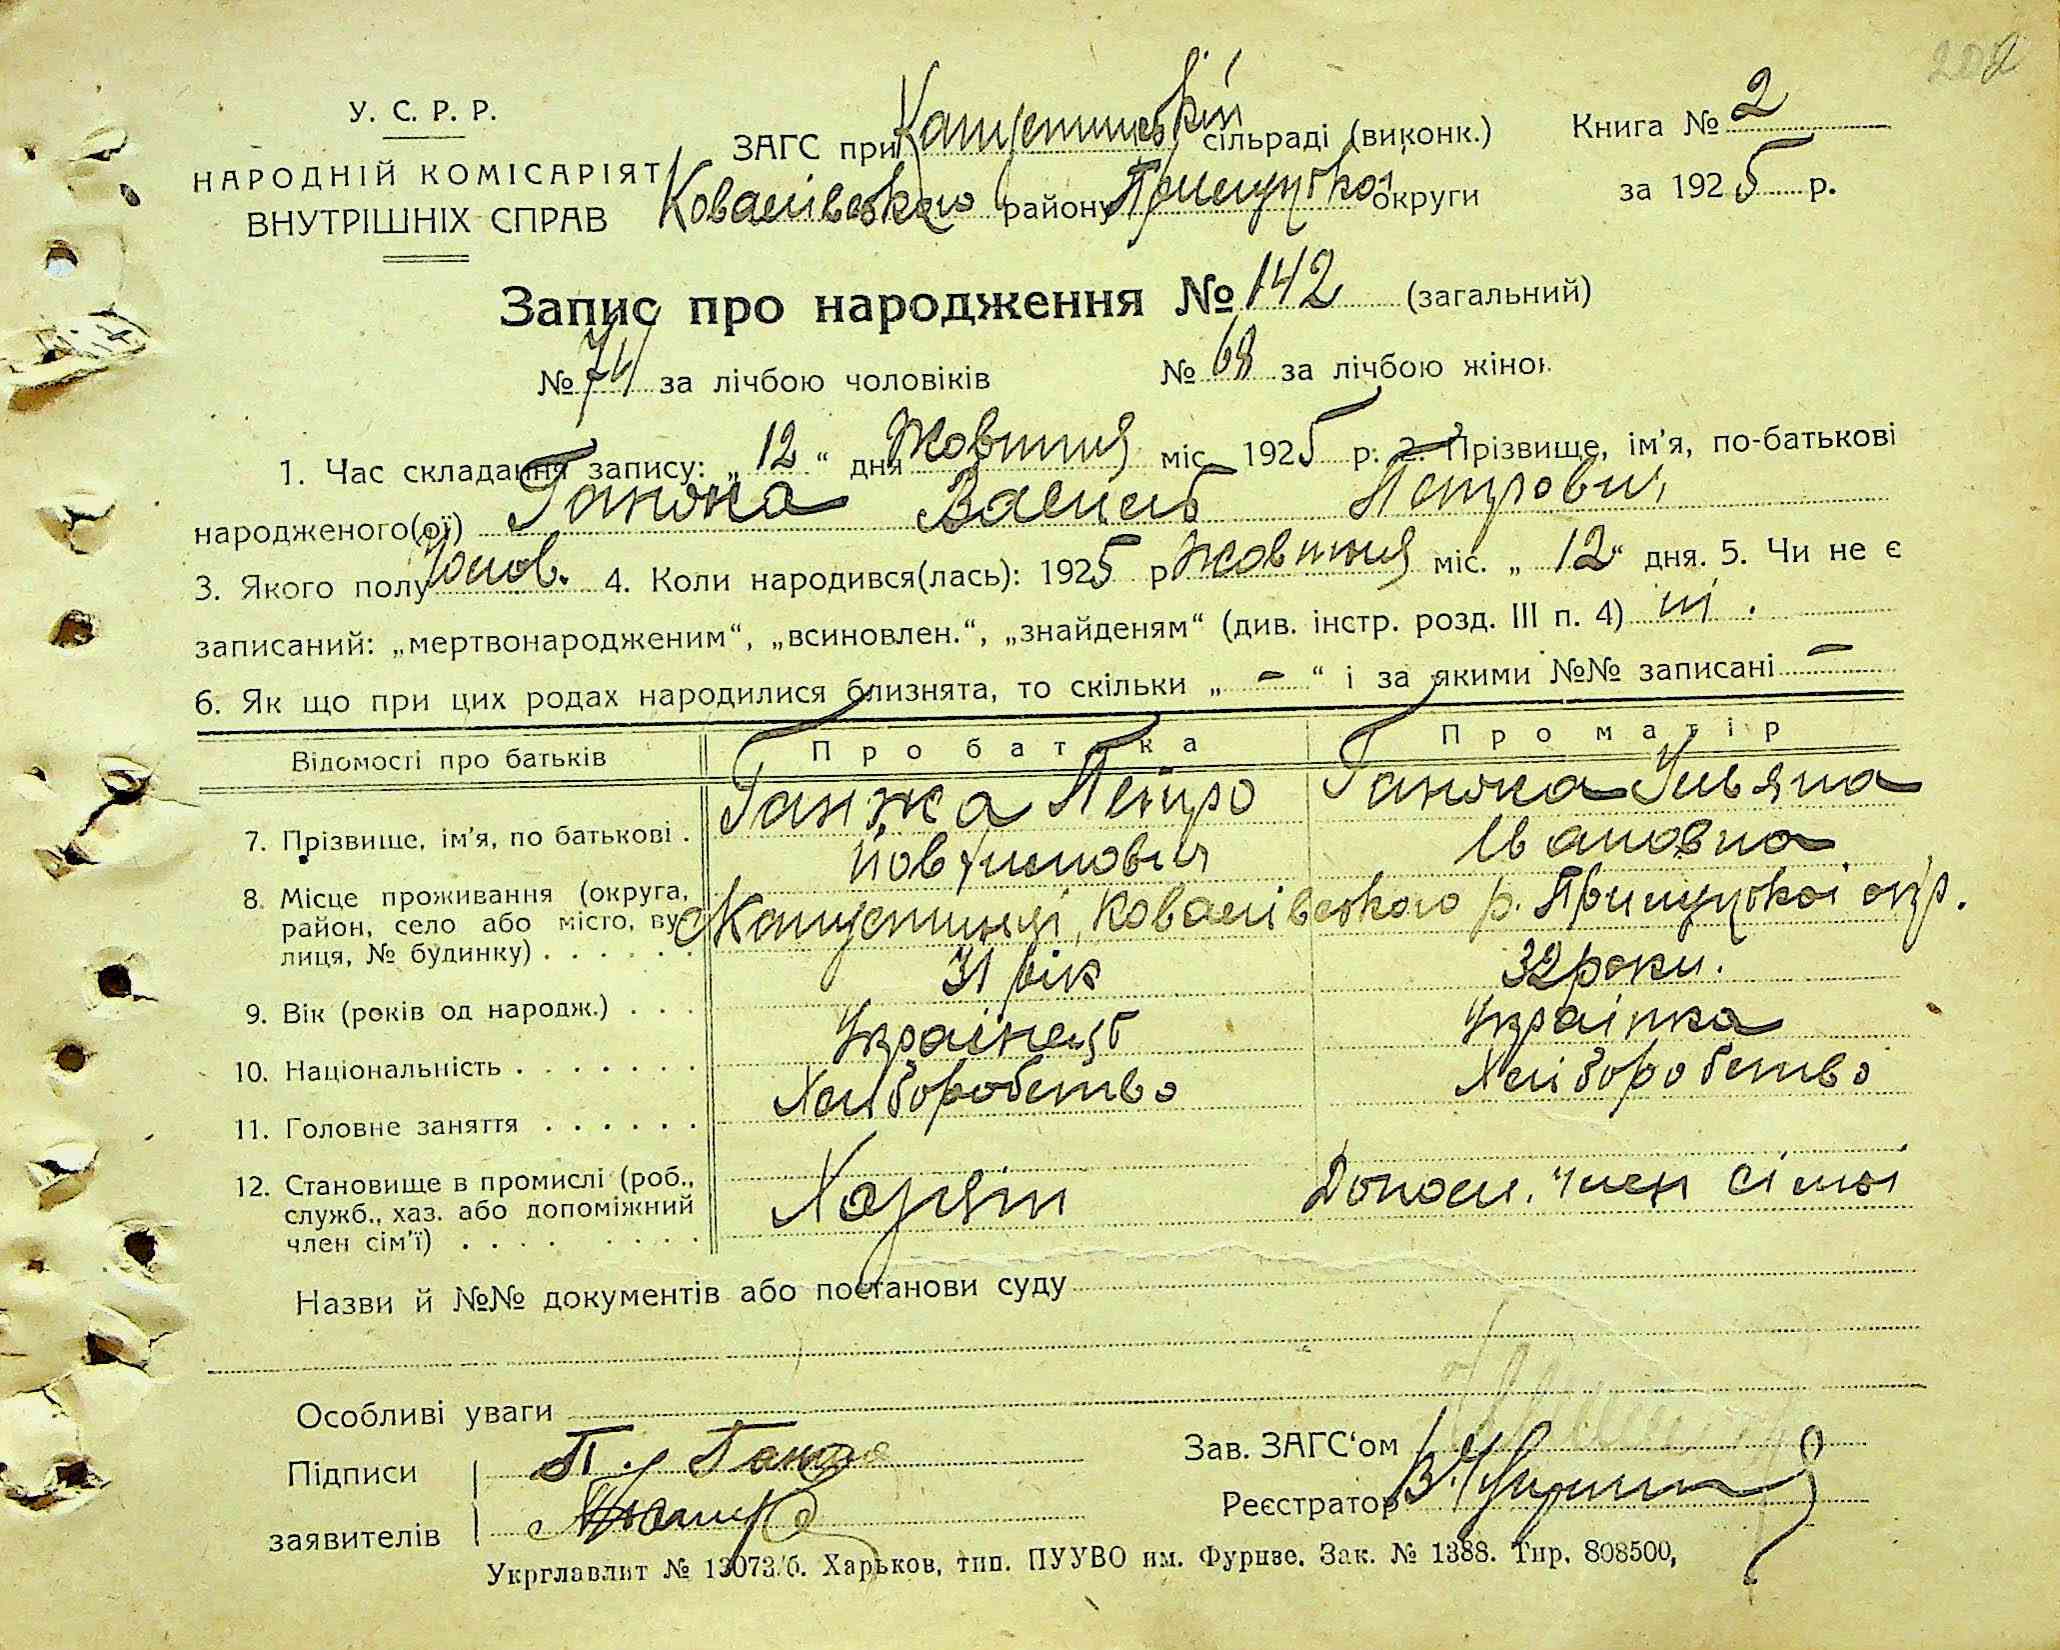 202
У. С. Р. Р.
НАРОДНІЙ КОМІСАРІЯТ
ВНУТРІШНІХ СПРАВ
ЗАГС при Капустинській сільраді (виконк.)
Ковалівського району Прилуцької округи
Книга № 2
за 1925 р.
Запис про народження № 142 (загальний)
№ 74 за лічбою чоловіків № 68 за лічбою жінок
1. Час складання запису: „ 12 “ дня Жовтня міс. 1925 р. 2. Прізвище, ім'я, по-батькові
народженого(ої) Ганжа Василь Петрович
3. Якого полу Чолов. 4. Коли народився(лась): 1925 р Жовтня міс. „ 12 “ дня. 5. Чи не є
записаний: „мертвонародженим“, „всиновлен.“, „знайденям“ (див. інстр. розд. III п. 4) ні .
6. Як що при цих родах народилися близнята, то скільки „ – “ і за якими №№ записані –
Відомості про батьків Про батька Про матір
7. Прізвище, ім'я, по батькові . Ганжа Петро Ганжа Ульяна
Йовтимович Івановна
8. Місце проживання (округа, район, село або місто, вулиця, № будинку) . . . . . . с Капустинці, Ковалівського р. Прилуцької окр.
9. Вік (років од народж.) . . . 31 рік 32 роки.
10. Національність . . . . . . . Українець Українка
11. Головне заняття . . . . . . Хліборобство Хліборобство
12. Становище в промислі (роб., служб., хаз. або допоміжний член сім'ї) . . . . . . . . Хазяїн Допом. член сімьї
Назви й №№ документів або постанови суду
Особливі уваги
Підписи П. Ганжа
заявителів
Зав. ЗАГС‘ом
Реєстратор
Укрглавлит № 13073/б. Харьков, тип. ПУУВО им. Фрунзе. Зак. № 1388. Тир. 808500,